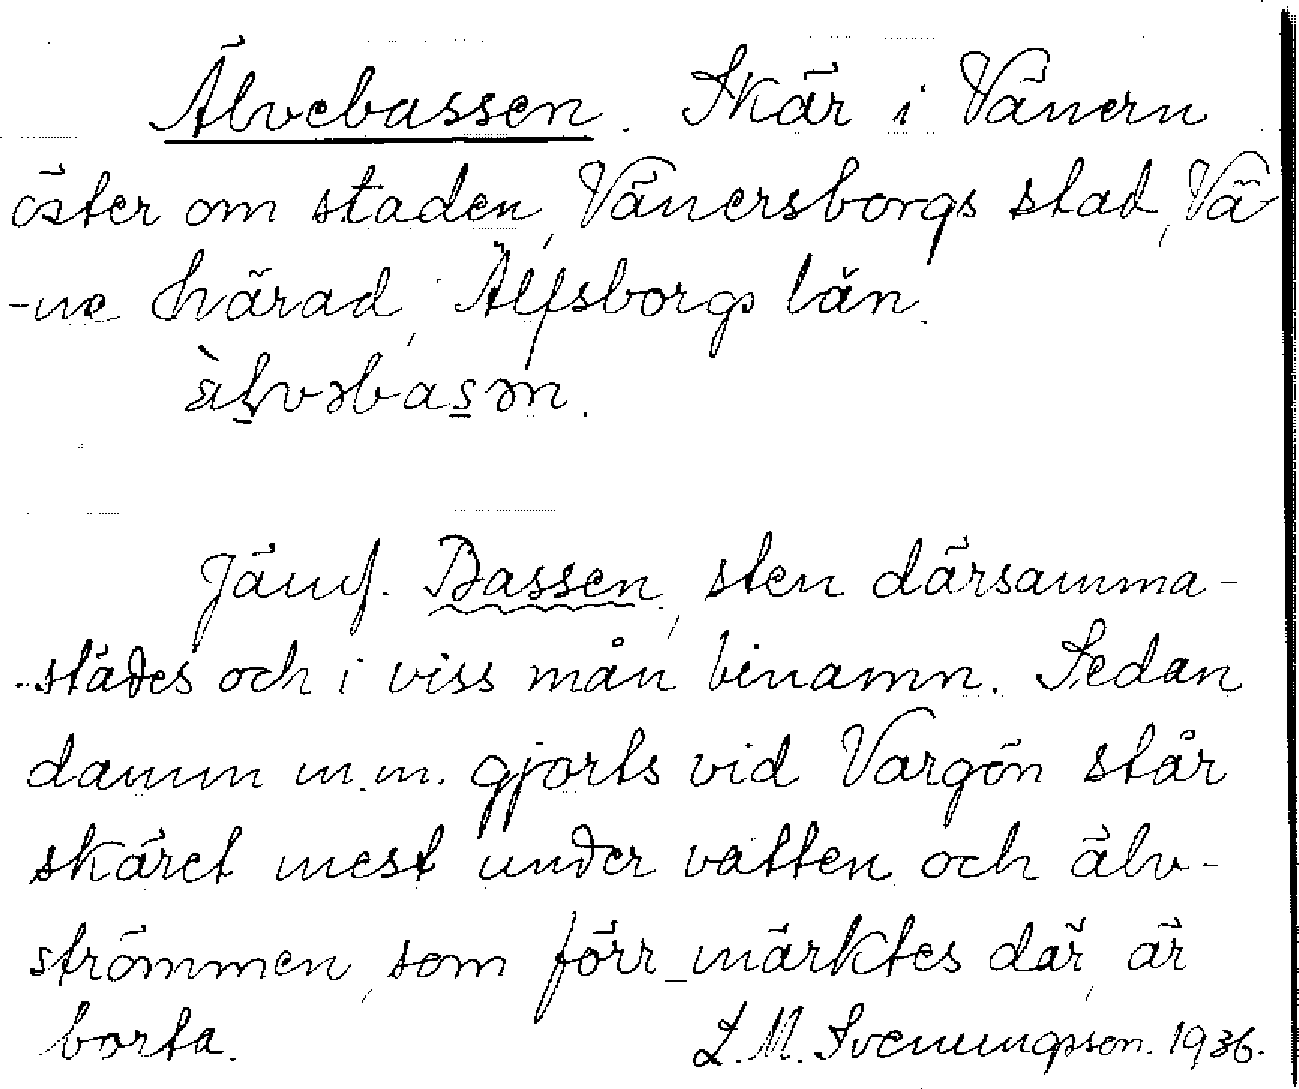 Älvebassen. Skär i Vänern
öster om staden, Vänersborgs stad, Vä-
-ne härad, Älfsborgs län.
Jämf. Bassen, sten därsamma-
-städes och i viss mån binamn. Sedan
damm m.m. gjorts vid Vargön står
skäret mest under vatten och älv-
strömmen, som förr märktes där, är
borta.
L. M. Svenungsson. 1936.